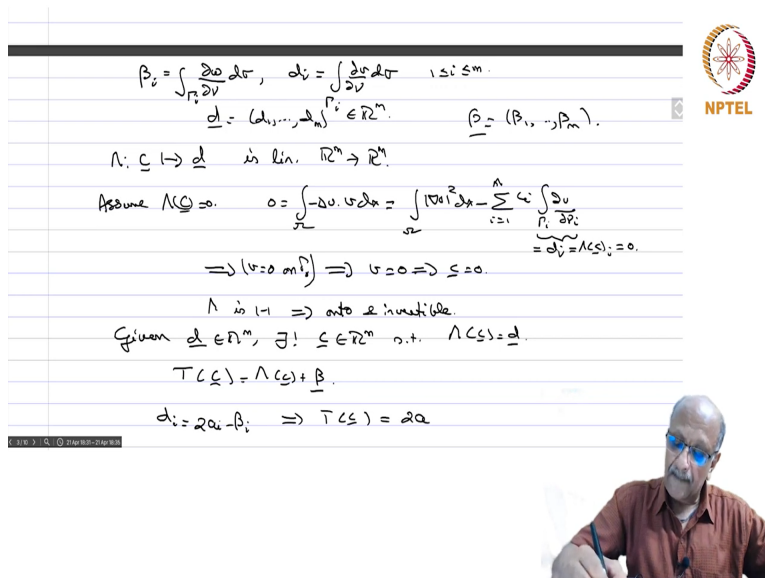 βi = ∫Γi ∂w/∂ν dσ, di = ∫Γi ∂v/∂ν dσ 1≤i≤m.
d = (d1,...,dm) ∈ ℝ^m. β = (β1,..,βm).
Λ: c ↦ d is lin. ℝ^m → ℝ^m.
Assume Λ(c)=0. 0 = ∫Ω -Δv.v dx = ∫Ω |∇v|² dx - Σ i=1 ci ∫Γi ∂v/∂νi
= di = Λ(c)i = 0.
⟹ (v=0 on Γ0) ⟹ v=0 ⟹ c=0.
Λ is 1-1 ⟹ onto & invertible.
Given d ∈ℝ^m, ∃! c ∈ℝ^m s.t. Λ(c)=d.
T(c) = Λ(c) + β.
di = 2ai - βi ⟹ T(c) = 2a
3/10 21 Apr 18:31 - 21 Apr 18:35
NPTEL